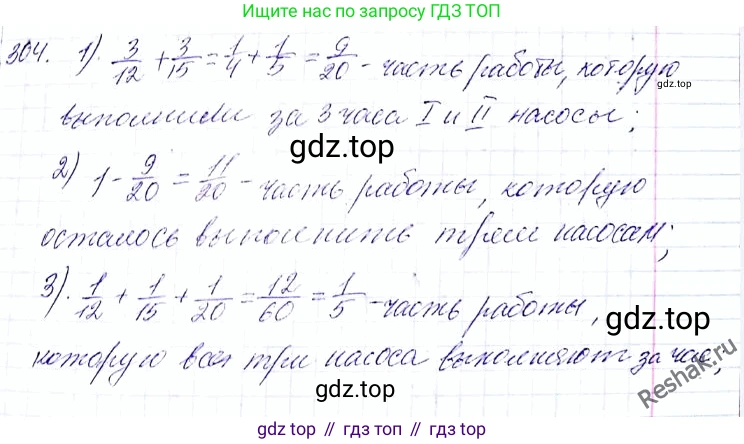 Ищите нас по запросу ГДЗ ТОП
304. 1). 3/12 + 3/15 = 1/4 + 1/5 = 9/20 - часть работы, которую
выполнили за 3 часа I и II насосы;
gdz.top
2) 1 - 9/20 = 11/20 - часть работы, которую
осталось выполнить трем насосам;
gdz.top
3). 1/12 + 1/15 + 1/20 = 12/60 = 1/5 - часть работы,
которую все три насоса выполняют за час;
gdz.top
Reshak.ru
gdz.top // гдз.топ // gdz.top // гдз.топ